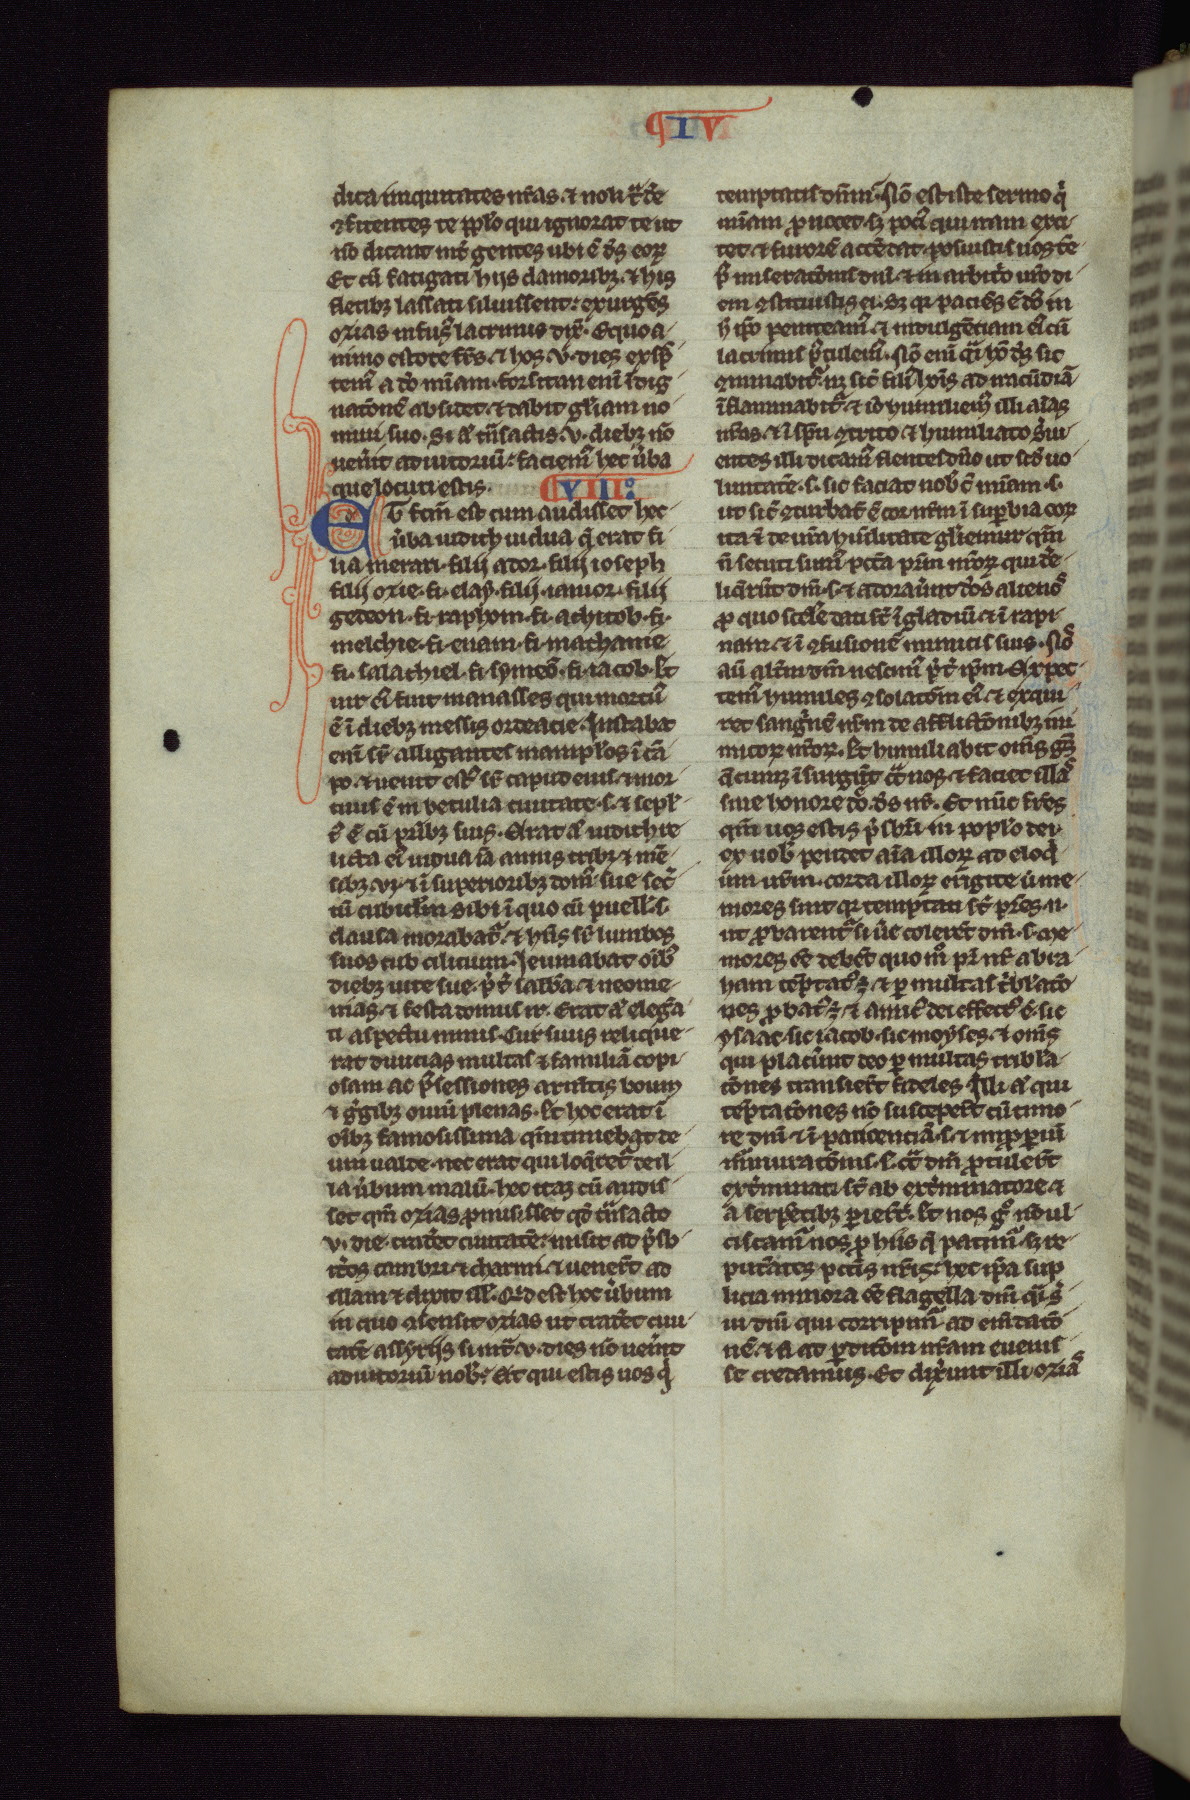 IV
dica iniquitates nr̄as. ⁊ noli t̄de
ꝯfitentes te pp̄lo qui ignorat te ut
nō dicant int̄ gentes ubi ē d̄s eoꝝ
Et cū fatigati hijs clamoribꝫ. ⁊ his
fletibꝫ lassati siluissent: exurgēs
ozias infusꝰ lacrimis dix̄. Equo a-
nimo estote fr̄s. ⁊ hos .v. dies exspc̄-
temꝰ a dn̄o mīam. forsitan eni īdig-
natōnē abscidet. ⁊ dabit glīam no-
mini suo. Si aū tn̄sactis .v. diebꝫ nō
uen̄it adiutoriū: faciemꝰ hec ūba
que locuti estis. VIII:
Et fc̄m est cum audisset hec
ūba iudith uidua q̄ erat fi-
lia merari. filij ador. filij ioseph
filij ozie. fi. elay. filij. iamor. filij
gedeon. fi. raphoin. fi. achitob. fi.
melchie. fi. enam. fi. mathanie
fi. salathiel. fi. symeō. fi. iacob. Et
uir eiꝰ fuit manasses qui mortuꝰ
ē ī diebꝫ messis ordeacie. Instabat
eni sr̄ alligantes manip̄los ī cā-
po. ⁊ uenit estꝰ sr̄ caput eius. ⁊ mor-
tuus ē in betulia ciuitate .s. ⁊ sepl̄-
tꝰ ē cū p̄ribꝫ suis. Erat aū iudith re-
licta eiꝰ uidua iā annis tribꝫ ⁊ mē-
sibꝫ .vj. ⁊ ī superioribꝫ domꝰ sue sec̄-
tū cubicl̄m sibi ī quo cū puell̄ .s.
clausa morabat̄. ⁊ hn̄s sr̄ lumbos
suos cub cilicium. Ieiunabat oībꝫ
diebꝫ uite sue p̄t̄ sabb̄a. ⁊ neome-
nias. ⁊ festa domus isr̄. Erat aū elegā-
ti aspectu nimis. Cui suus relique-
rat diuicias multas ⁊ familiā copi-
osam ac p̄sessiones armētis boum
⁊ g̊gibꝫ ouiū plenas. Et hoc erat ī
oībꝫ famosissima qm̄ timebat de-
um ualde. nec erat qui loq̄ret̄ de il-
la ūbum malū. hec itaꝫ cū audis-
set qm̄ ozias p̄misisset qd̄ tn̄sacto
v. die. tradet̄ ciuitatē: misit ad p̄sb-
it̄os cambri. ⁊ charmi. ⁊ uenert̄ ad
illam ⁊ dixit ill̄. Qd est hoc ūbum
in quo ꝯsensit ozias ut tradet̄ ciui-
tatē assyriis si infr̄ .v. dies nō uen̄it
adiutoriū nob̄. Et qui estis uos q̄
temptatis dn̄m. Nō est iste sermo q̄
mīam prouocet. sꝫ poci qui iram exci-
tet. ⁊ furorē accēdat. posuistis uos tē-
pꝰ miseratōnis dn̄i. ⁊ in arbito ur̄o di-
em ꝯstituistis ei. Sꝫ qr paciēs ē dn̄s in
h̄ ip̄o peniteamꝰ. ⁊ indulgēciam eiꝰ cū
lacrimis p̄tulemꝰ. Nō eni q̄si hō ds̄ sic
ꝯminabit̄. nꝫ sic̄ filiꝰ hoīs ad iracūdiā
īflammabit̄. ⁊ iō humiliemꝰ illi aīas
nr̄as. ⁊ ī sp̄u ꝯtrito ⁊ humiliato s̄ui-
entes illi dicamꝰ flentes dn̄o ut sc̄d uo-
luntatē .s. sic faciat nob̄cū mīam .s.
ut sic̄ ꝯturbat̄ ē cor nr̄m ī sup̄bia eoꝝ
ita ⁊ de nr̄a hūilitate gl̄iemur. qm̄
n̄ secuti sumꝰ pctā prm̄ nr̄oꝝ qui de-
liq̄runt dm̄ .s. ⁊ adorauūt deos alienos
pro quo scel̄e dati st̄ ī gladiū. ⁊ ī rapi-
nam. ⁊ ī ꝯfusionē inimicis suis. Nos
aū alt̄m dm̄ nescimꝰ p̄t̄ ip̄m. Expec-
temꝰ humiles ꝯsolatōm eiꝰ. ⁊ exqui-
ret sanguinē nr̄m de afflictōnibꝫ ini-
micoꝝ nr̄oꝝ. Et humiliabit om̄s gn̄s
q̄cumꝫ īsurgūt ꝯt̄ nos. ⁊ faciet illas
sine honore dn̄s ds̄ nr̄. Et nūc fr̄es
qm̄ uos estis p̄sbīt̄i in pop̄lo dei.
ex uob̄ pendet aīa illoꝝ ad eloq̄-
ium ur̄m. corda illoꝝ erigite ū me-
mores sint qr temptati st̄ pr̄es .n.
ut probarent̄ si ūe colerēt dm̄ .s. me-
mores eē debēt quo mō pr̄ nr̄ abra-
ham tēptatꝰ ē. ⁊ per multas tribl̄atō-
nes probatꝰ ē. ⁊ amicꝰ dei effectꝰ ē. sic
ysaac. sic iacob. sic moyses. ⁊ om̄s
qui placūnt deo per multas tribl̄a-
cōnes transiert̄ fideles. Illi aū qui
tēptacōnes nō susceperūt cū timo-
re dn̄i. ⁊ ī paciencia .s. ⁊ improperiū
murmuratōnis .s. ꝯt̄ dm̄ protulert̄
ext̄minati st̄ ab ext̄minatore. ⁊
a serpētibꝫ perierūt. Et nos gꝰ nō ul-
ciscamꝰ nos pro hiis q̄ patimꝰ. sꝫ re-
putātes pctīs nr̄is: hec ip̄a sup-
licia minora eē flagella dn̄i q̄si s̄-
ui dn̄i qui corripimꝰ ad emdatō-
nē. ⁊ n̄ ad perdicōm nr̄am euenis-
se credamus. Et dixerunt illi ozias